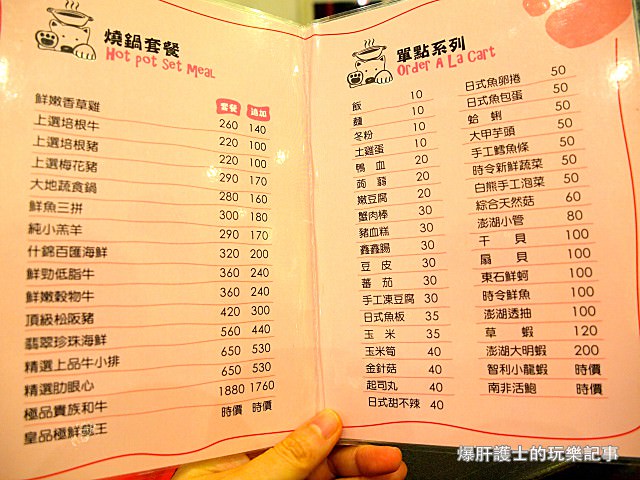 燒鍋套餐
Hot pot Set Meal
套餐 追加
鮮嫩香草雞 260 140
上選培根牛 220 100
上選培根豬 220 100
上選梅花豬 290 170
大地蔬食鍋 280 160
鮮魚三拼 300 180
純小羔羊 290 170
什錦百匯海鮮 320 200
鮮勁低脂牛 360 240
鮮嫩穀物牛 360 240
頂級松阪豬 420 300
翡翠珍珠海鮮 560 440
精選上品牛小排 650 530
精選肋眼心 650 530
極品貴族和牛 1880 1760
皇品極鮮王 時價 時價
單點系列
Order A La Cart
飯 10
麵 10
冬粉 10
土雞蛋 10
鴨血 20
蒟蒻 20
嫩豆腐 20
蟹肉棒 30
豬血糕 30
鑫鑫腸 30
豆皮 30
番茄 30
手工凍豆腐 30
日式魚板 35
玉米 35
玉米筍 40
金針菇 40
起司丸 40
日式甜不辣 40
日式魚卵捲 50
日式魚包蛋 50
蛤蜊 50
大甲芋頭 50
手工鱈魚條 50
時令新鮮蔬菜 50
白熊手工泡菜 50
綜合天然菇 60
澎湖小管 80
干貝 100
扇貝 100
東石鮮蚵 100
時令鮮魚 100
澎湖透抽 100
草蝦 120
澎湖大明蝦 200
智利小龍蝦 時價
南非活鮑 時價
爆肝護士的玩樂記事